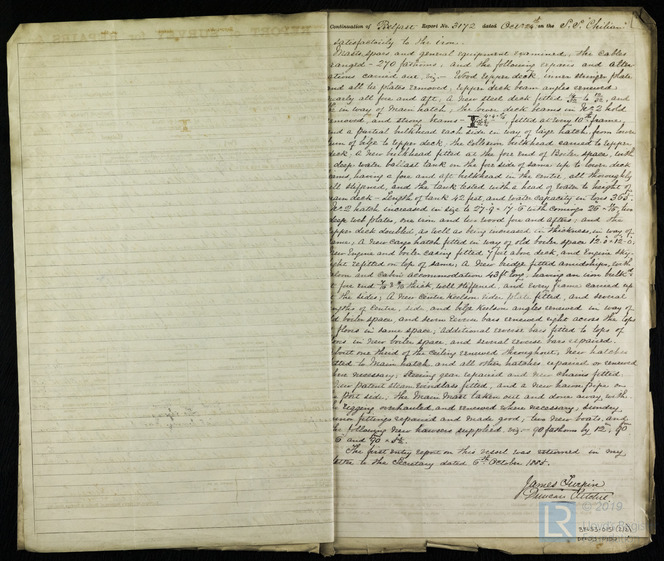 Continuation of Belfast Report No. 3172 dated Octr 24th on the S.S. "Chilian"
satisfactorily to the iron.
Masts, spars and general equipment examined, the cables
ranged - 270 fathoms, and the following repairs and alter
ations carried out, viz:- Wood upper deck, inner stringer plate
and all tie plates removed, upper deck beam angles renewed
nearly all fore and aft. A new steel deck fitted and
in way of Main hatch, the lower deck beams in No 2 hold
removed, and strong beams fitted at every 10th frame,
and a partial bulkhead each side in way of large hatch from lower
turn of bilge to upper deck, the collision bulkhead carried to upper
deck. A new bulkhead fitted at the fore end of Boiler space, with
a deep water ballast tank on the fore side of same up to lower deck
beams, having a fore and aft bulkhead in the centre, all thoroughly
well stiffened, and the tank tested with a head of water to height of
main deck - Length of tank 42 feet, and water capacity in tons 365.
No 2 hatch increased in size to 27.9 × with comings two
deep web plates, one iron and two wood fore and afters, and the
upper deck doubled, as well as being increased in thickness, in way of
same, A New Cargo hatch fitted in way of old boiler space 12.0 × 12.0,
New Engine and boiler casing fitted 7 feet above deck, and Engine sky-
light refitted on top of same; A New bridge fitted amidships, with
saloon and cabin accommodation 43 ft long, having an iron bulkhd
at fore end thick, well stiffened, and every frame carried up
at the sides; A New Centre Keelson rider plate fitted, and several
lengths of Centre, side and bilge Keelson angles renewed in way of
old boiler space and seven reverse bars renewed right across the tops
of floors in same space; additional reverse bars fitted to tops of
floors in new boiler space, and several reverse bars repaired.
About one third of the Ceiling renewed throughout, New hatches
fitted to Main hatch, and all other hatches repaired or renewed
where necessary; Steering gear repaired and new chains fitted.
New patent steam windlass fitted, and a new hawse pipe on
port side, The Main Mast taken out and done away with.
rigging overhauled and renewed where necessary, sundry
fittings repaired and made good, two new boats, and
the following New hawsers supplied viz:- 90 fathoms by 12", 90
and 90 ×
The first entry report on this vessel was returned in my
letter to the Secretary dated 6th October 1885.
James Turpin
Duncan Ritchie
LR
© 2019